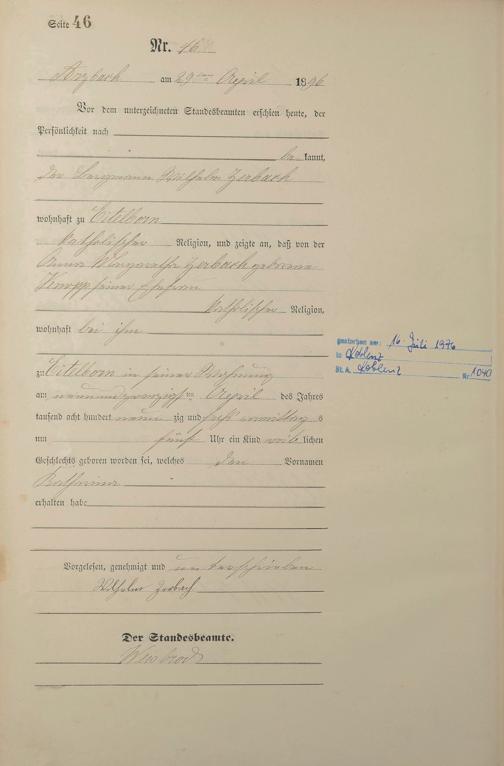 Seite 46
Nr. 46
Arzbach am 29ten April 1896
Vor dem unterzeichneten Standesbeamten erschien heute, der
Persönlichkeit nach
be kannt,
der Bergmann Wilhelm Zerbach
wohnhaft zu Eitelborn
katholischer Religion, und zeigte an, daß von der
Anna Margaretha Zerbach geborene
Knopp seiner Ehefrau
katholischer Religion,
wohnhaft bei ihm
zu Eitelborn in seiner Wohnung
am neunundzwanzigsten April des Jahres
tausend acht hundert neun zig und sechs vormittag s
um fünf Uhr ein Kind weib lichen
Geschlechts geboren worden sei, welches den Vornamen
Katharina
erhalten habe
Vorgelesen, genehmigt und unterschrieben
Wilhelm Zerbach
Der Standesbeamte.
gestorben am: 16. Juli 1976
in Koblenz
St. A. Koblenz Nr. 1040